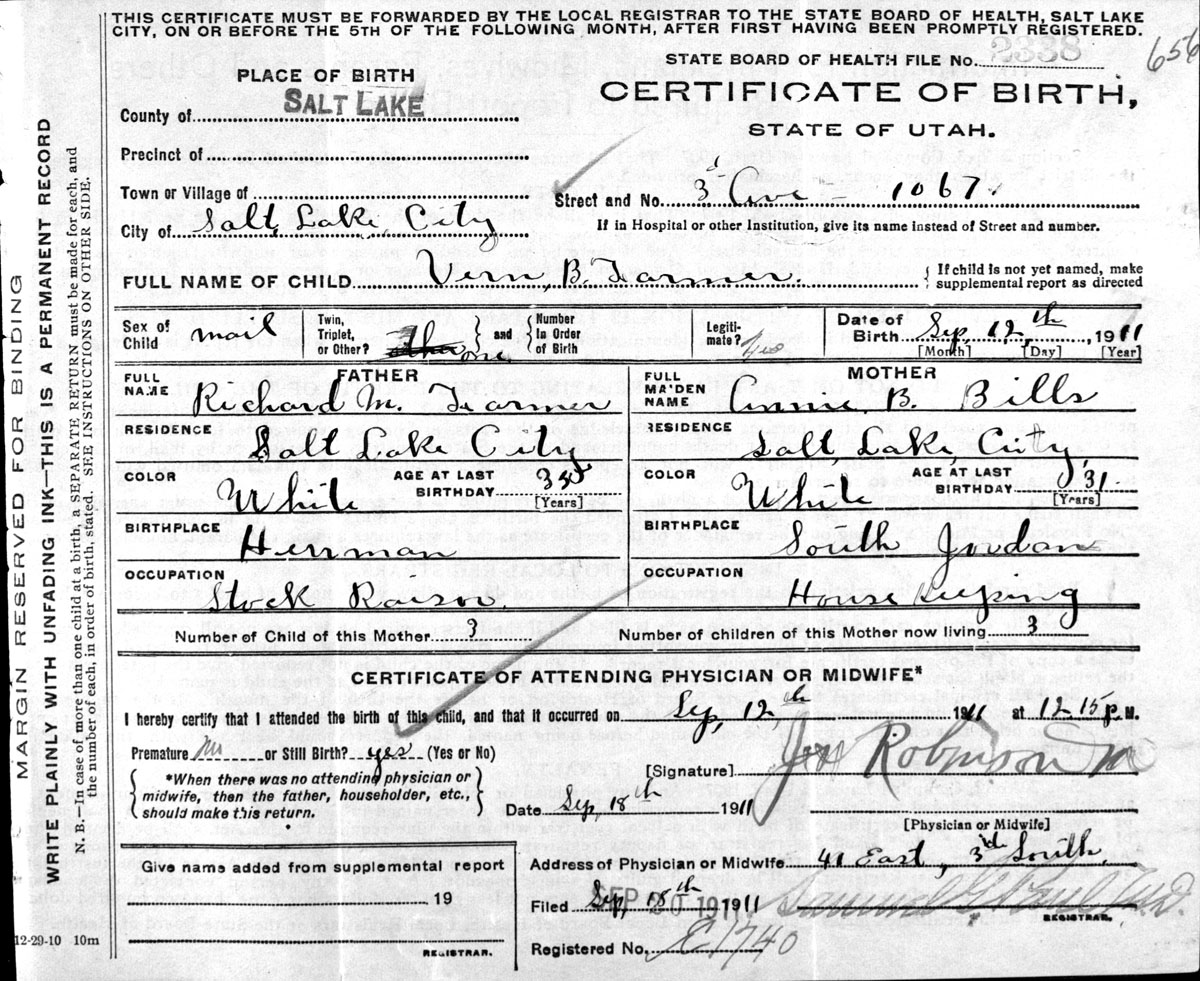 THIS CERTIFICATE MUST BE FORWARDED BY THE LOCAL REGISTRAR TO THE STATE BOARD OF HEALTH, SALT LAKE
CITY, ON OR BEFORE THE 5TH OF THE FOLLOWING MONTH, AFTER FIRST HAVING BEEN PROMPTLY REGISTERED.
STATE BOARD OF HEALTH FILE No. 2338
656
PLACE OF BIRTH
CERTIFICATE OF BIRTH,
STATE OF UTAH.
County of SALT LAKE
Precinct of
Town or Village of
Street and No. 3d Ave - 1067.
City of Salt Lake City
If in Hospital or other Institution, give its name instead of Street and number.
FULL NAME OF CHILD Vern, B. Farmer.
{ If child is not yet named, make
supplemental report as directed
Sex of Child mail
Twin, Triplet, or Other? one
and { Number In Order of Birth
Legitimate? Yes
Date of Birth Sep, 12,th, 1911
[Month] [Day] [Year]
FATHER
FULL NAME Richard M. Farmer
RESIDENCE Salt Lake City
COLOR White AGE AT LAST BIRTHDAY 33 [Years]
BIRTHPLACE Herrman
OCCUPATION Stock Raisor.
MOTHER
FULL MAIDEN NAME Annie B. Bills
RESIDENCE Salt, Lake, City,
COLOR White AGE AT LAST BIRTHDAY 31 [Years]
BIRTHPLACE South Jordan
OCCUPATION House Keeping
Number of Child of this Mother 3
Number of children of this Mother now living 3
CERTIFICATE OF ATTENDING PHYSICIAN OR MIDWIFE*
I hereby certify that I attended the birth of this child, and that it occurred on Sep, 12,th 1911 at 12 15 P. M.
Premature or Still Birth? yes (Yes or No)
{ *When there was no attending physician or
midwife, then the father, householder, etc.,
should make this return. }
[Signature] Robinson
Date Sep, 18th 1911
[Physician or Midwife]
Give name added from supplemental report
19
REGISTRAR.
Address of Physician or Midwife 41 East, 3rd South,
Filed Sep, 18th 1911
SEP 20 1911
Samuel G. Paul
REGISTRAR.
Registered No. E1740
12-29-10 10m
MARGIN RESERVED FOR BINDING
WRITE PLAINLY WITH UNFADING INK—THIS IS A PERMANENT RECORD
N. B.—In case of more than one child at a birth, a SEPARATE RETURN must be made for each, and
the number of each, in order of birth, stated. SEE INSTRUCTIONS ON OTHER SIDE.